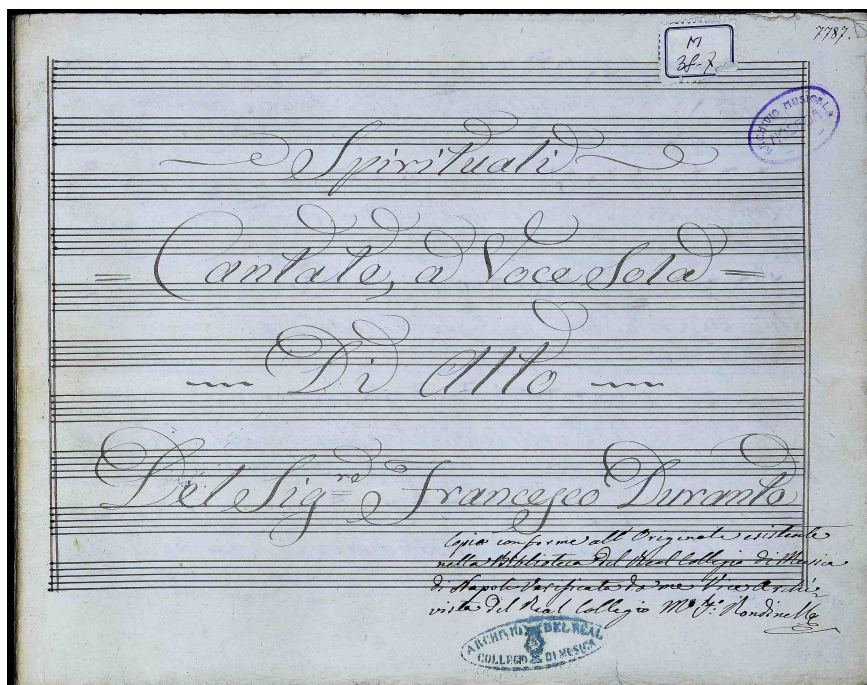 M
38-7
7787.
ARCHIVIO MUSICALE
Spirituali
Cantate, a Voce Sola
Di Alto
Del Sig.re Francesco Durante
Copia conforme all' Originale esistente
nella Biblioteca del Real Collegio di Musica
di Napoli Verificata da me Vice Archi-
vista del Real Collegio Mo. F. Rondinella
ARCHIVIO DEL REAL
COLLEGIO DI MUSICA